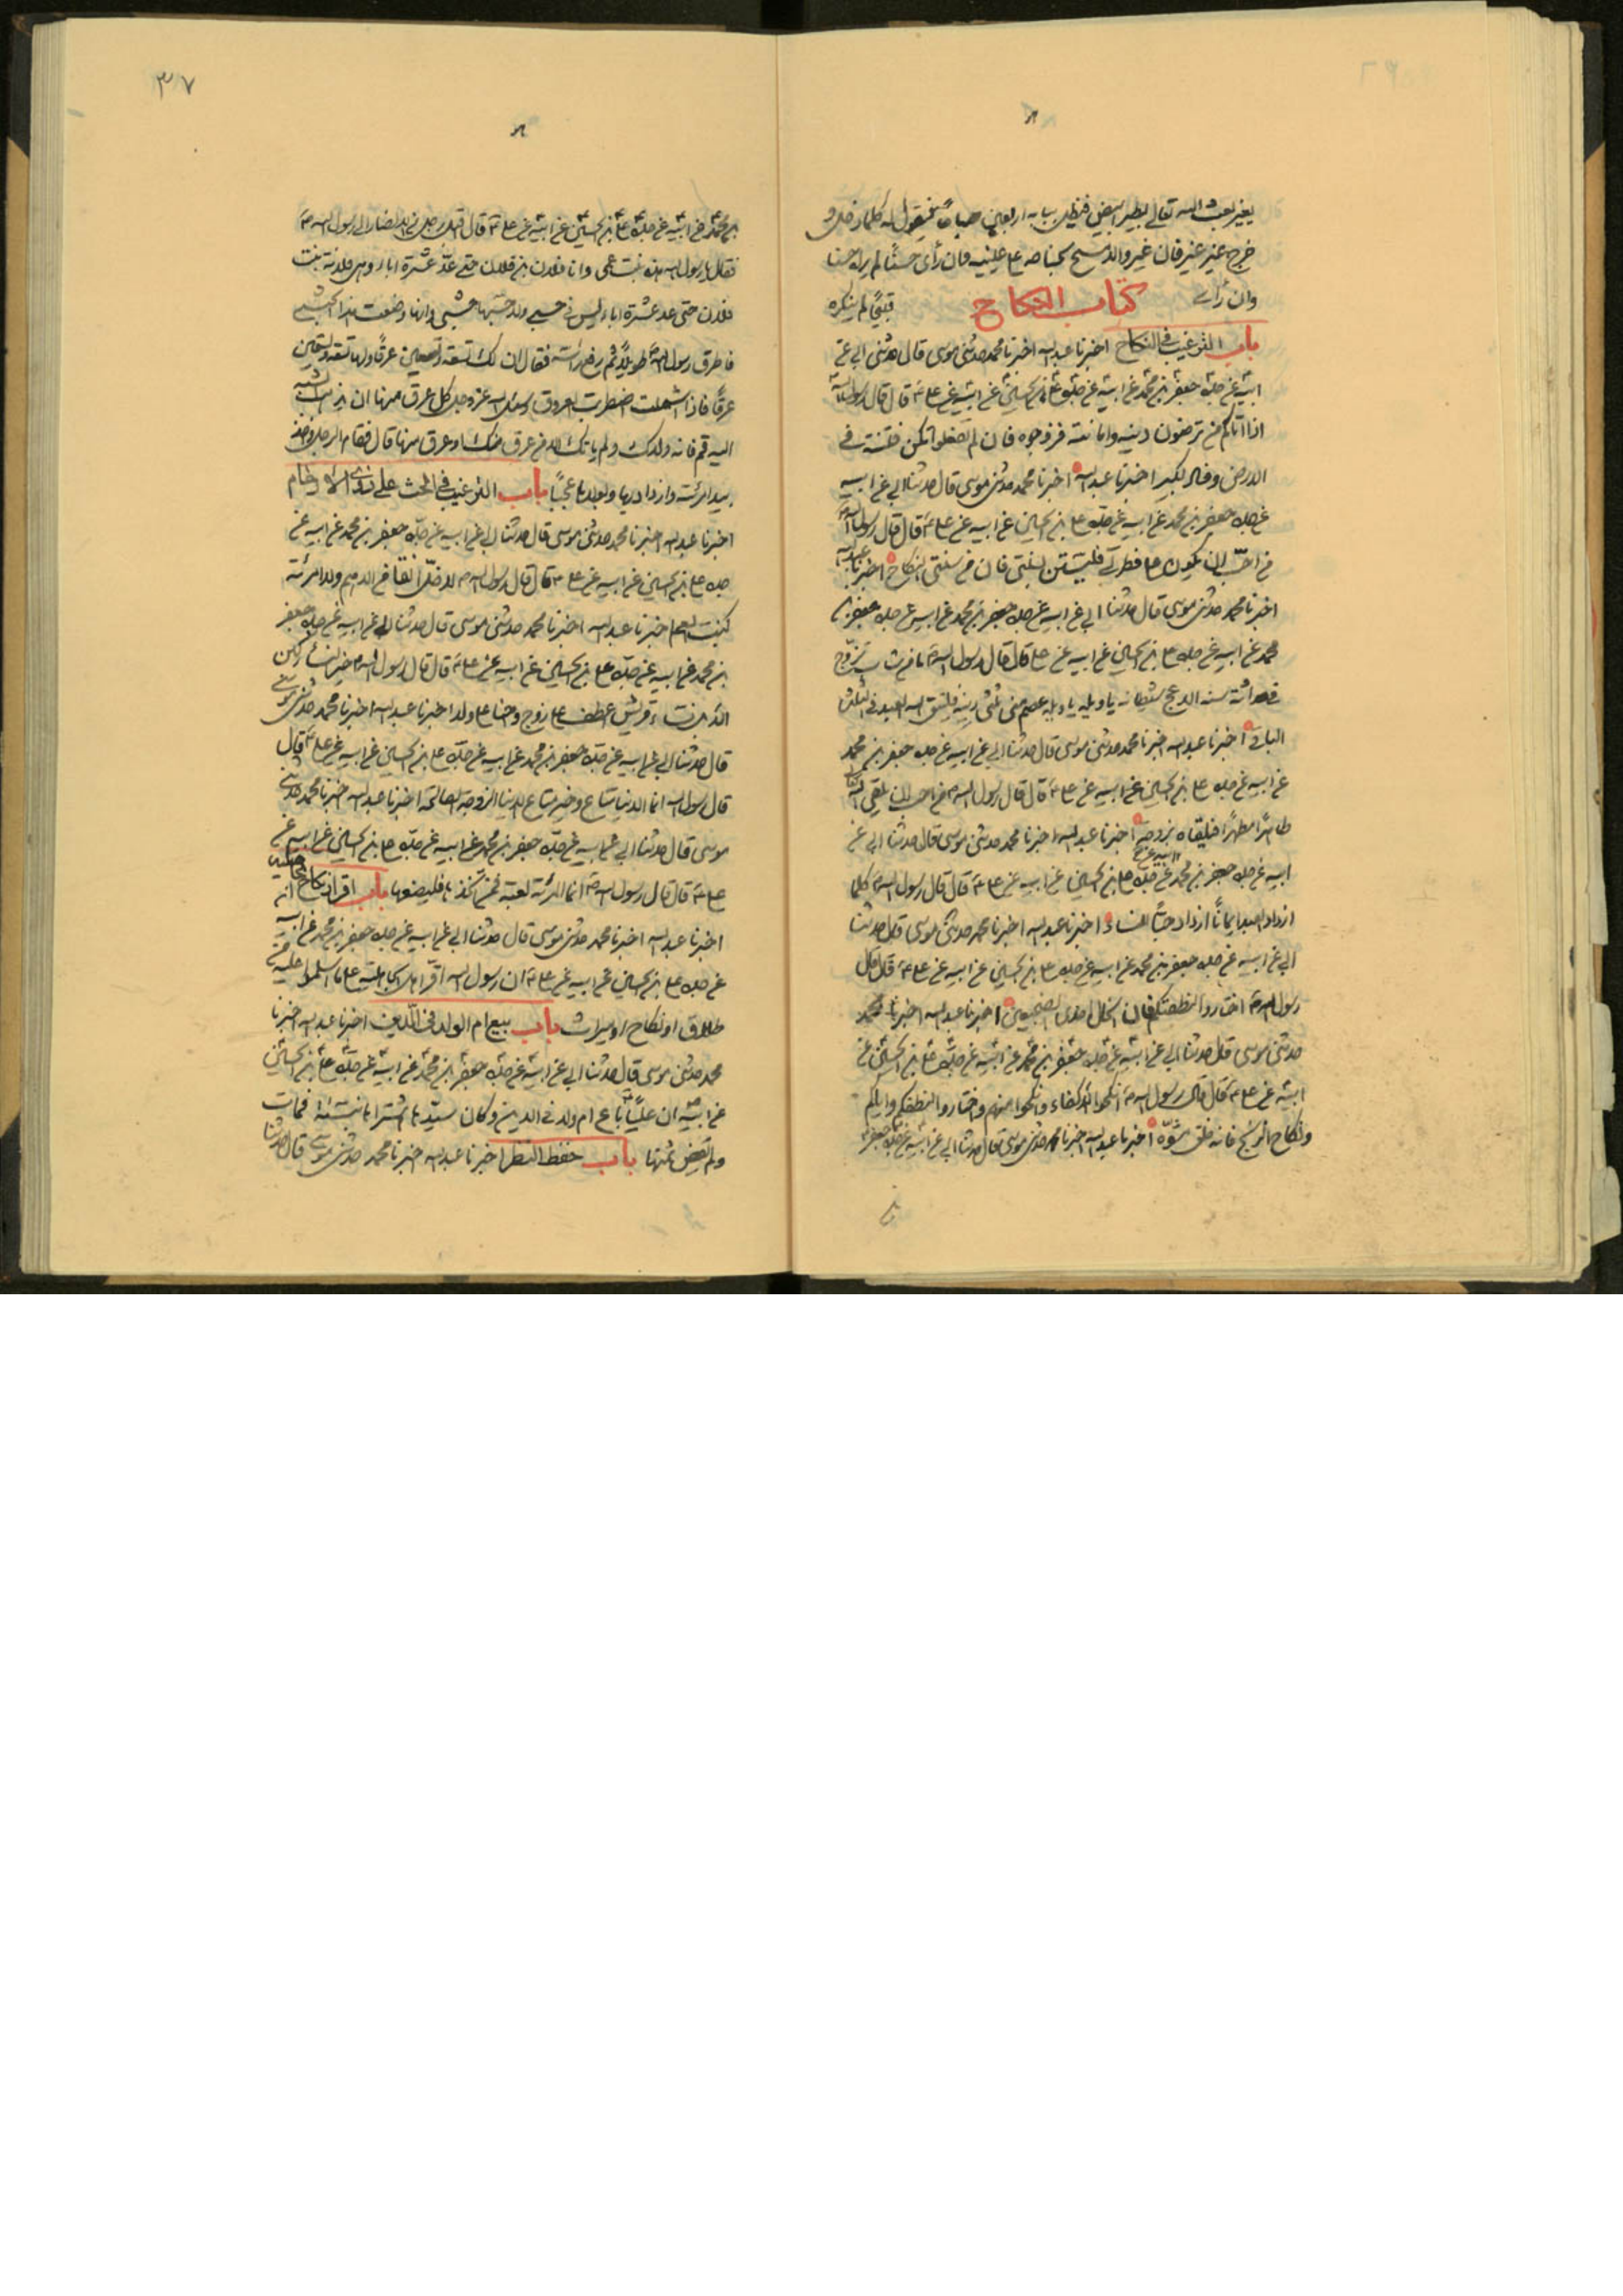 يغير بعث الله تعالى بطير ابيض فيظل ببابه اربعين صباحا فيقول له كلما دخل و
خرج غير غير فان غير والا مسح بجناحه على عينيه فان رأى حسنًا لم يراه حسنا
وان رأى كتاب النكاح قبيحًا لم ينكره
باب الترغيب في النكاح اخبرنا عبد الله اخبرنا محمد حدثنى موسى قال حدثنى ابى عن
ابيه عن جده جعفر بن محمد عن ابيه عن جده على بن الحسين عن ابيه عن على ع قال قال رسول الله
اذا اتاكم من ترضون دينه وامانته فزوجوه فان لم تفعلوا تكن فتنة في
الارض وفساد كبير اخبرنا عبد الله اخبرنا محمد حدثنى موسى قال حدثنا ابى عن ابيه
عن جده جعفر بن محمد عن ابيه عن جده على بن الحسين عن ابيه عن على ع قال قال رسول الله
من احب ان يكون على فطرتى فليستن بسنتى فان من سنتى النكاح اخبرنا عبد الله
اخبرنا محمد حدثنى موسى قال حدثنا ابى عن ابيه عن جده جعفر بن
محمد عن ابيه عن جده على بن الحسين عن ابيه عن على قال قال رسول الله ما من شاب تزوج
في حداثة سنه الا عج شيطانه يا ويله يا ويله عصم منى ثلثى دينه فليتق الله العبد في الثلث
الباقى اخبرنا عبد الله اخبرنا محمد حدثنى موسى قال حدثنا ابى عن ابيه عن جده جعفر بن محمد
عن ابيه عن جده على بن الحسين عن ابيه عن على ع قال قال رسول الله من احب ان يلقى الله
طاهرًا مطهرًا فليلقاه بزوجة اخبرنا عبد الله اخبرنا محمد حدثنى موسى قال حدثنا ابى عن
ابيه عن جده جعفر بن محمد عن ابيه عن جده على بن الحسين عن ابيه عن على ع قال قال رسول الله كلما
ازداد العبد ايمانًا ازداد حبًا للنساء اخبرنا عبد الله اخبرنا محمد حدثنى موسى قال حدثنا
ابى عن ابيه عن جده جعفر بن محمد عن ابيه عن جده على بن الحسين عن ابيه عن على ع قال قال
رسول الله اختاروا لنطفتكم فان الخال احدى الضجيعين اخبرنا عبد الله اخبرنا محمد
حدثنى موسى قال حدثنا ابى عن ابيه عن جده جعفر بن محمد عن ابيه عن جده على بن الحسين عن
ابيه عن على ع قال قال رسول الله انكحوا الاكفاء وانكحوا منهم واختاروا لنطفكم واياكم
ونكاح الزنج فانه خلق مشوّه اخبرنا عبد الله اخبرنا محمد حدثنى موسى قال حدثنا ابى عن ابيه عن جده جعفر
٣٧
بن محمد عن ابيه عن جده على بن الحسين عن ابيه عن على ع قال اقبل رجل من الانصار الى رسول الله
فقال يا رسول الله هذه بنت عمى وانا فلان بن فلان حتى عدّ عشرة اباء وهى فلانة بنت
فلان حتى عد عشرة اباء ليس في حسبى ولا حسبها حبشى وانها وضعت هذا الحبشى
فاطرق رسول الله طويلًا ثم رفع رأسه فقال ان لك تسعة وتسعين عرقًا ولها تسعة وتسعين
عرقًا فاذا اشتملت اضطربت العروق وسئل الله عز وجل كل عرق منها ان يذهب الشبه
اليه قم فانه ولدك ولم ياتك الا من عرق منك او عرق منها قال فقام الرجل واخذ
بيد امرئته وازداد بها وبولدها عجبًا باب الترغيب في الحث على
اخبرنا عبد الله اخبرنا محمد حدثنى موسى قال حدثنا ابى عن ابيه عن جدّه جعفر بن محمد عن ابيه عن
جده على بن الحسين عن ابيه عن على ع قال قال رسول الله
اخبرنا عبد الله اخبرنا محمد حدثنى موسى قال حدثنا ابى عن ابيه عن جده جعفر
بن محمد عن ابيه عن جدّه على بن الحسين عن ابيه عن على ع قال قال رسول الله خير نساء ركبن
الابل نساء قريش اعطف على زوج واحنا على ولد اخبرنا عبد الله اخبرنا محمد حدثنى موسى
قال حدثنا ابى عن ابيه عن جدّه جعفر بن محمد عن ابيه عن جدّه على بن الحسين عن ابيه عن على ع قال
قال رسول الله انما الدنيا متاع وخير متاع الدنيا الزوجة الصالحة اخبرنا عبد الله اخبرنا محمد حدثنى
موسى قال حدثنا ابى عن ابيه عن جدّه جعفر بن محمد عن ابيه عن جدّه على بن الحسين عن ابيه عن
على ع قال قال رسول الله انما المرئة لعبة فمن اتخذها فليضعها باب اقرار نكاح الجاهلية
اخبرنا عبد الله اخبرنا محمد حدثنى موسى قال حدثنا ابى عن ابيه عن جده جعفر بن محمد عن ابيه
عن جده على بن الحسين عن ابيه عن على ع ان رسول الله اقرّ اهل الجاهلية على ما اسلموا عليه من
طلاق او نكاح او ميراث باب بيع ام الولد في الدّين اخبرنا عبد الله اخبرنا
محمد حدثنى موسى قال حدثنا ابى عن ابيه عن جده جعفر بن محمد عن ابيه عن جده على بن الحسين
عن ابيه ان عليًا باع ام ولد في الدين وكان سيّدها اشتراها بنسئة فمات
ولم يقض ثمنها باب حفظ النظر اخبرنا عبد الله اخبرنا محمد حدثنى موسى قال حدثنا